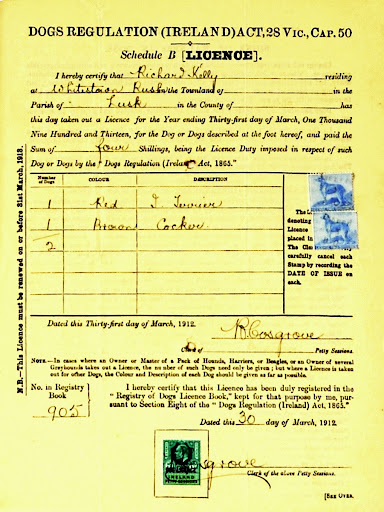 DOGS REGULATION (IRELAND) ACT, 28 VIC., CAP. 50
Schedule B [LICENCE].
I hereby certify that Richard Kelly residing
at Whitestown Rush the Townland of
in the
Parish of Lusk in the County of has
this day taken out a Licence for the Year ending Thirty-first day of March, One Thousand
Nine Hundred and Thirteen, for the Dog or Dogs described at the foot hereof, and paid the
Sum of four Shillings, being the Licence Duty imposed in respect of such
Dog or Dogs by the "Dogs Regulation (Ireland) Act, 1865."
Number of Dogs COLOUR DESCRIPTION
1 Red I Terrier
1 Brown Cocker
2
denoting
Licence
placed in
The Cle
carefully cancel each
Stamp by recording the
DATE OF ISSUE on
each.
N.B.—This Licence must be renewed on or before 31st March, 1913.
Dated this Thirty-first day of March, 1912.
R Cosgrove
Clerk of Petty Sessions.
NOTE.—In cases where an Owner or Master of a Pack of Hounds, Harriers, or Beagles, or an Owner of several
Greyhounds takes out a Licence, the number of such Dogs need only be given; but where a Licence is taken
out for other Dogs, the Colour and Description of each Dog should be given as far as possible.
No. in Registry
Book
905
I hereby certify that this Licence has been duly registered in the
"Registry of Dogs Licence Book," kept for that purpose by me, pur-
suant to Section Eight of the "Dogs Regulation (Ireland) Act, 1865."
Dated this 30 day of March, 1912.
sgrove
Clerk of the above Petty Sessions.
IRELAND
[SEE OVER.